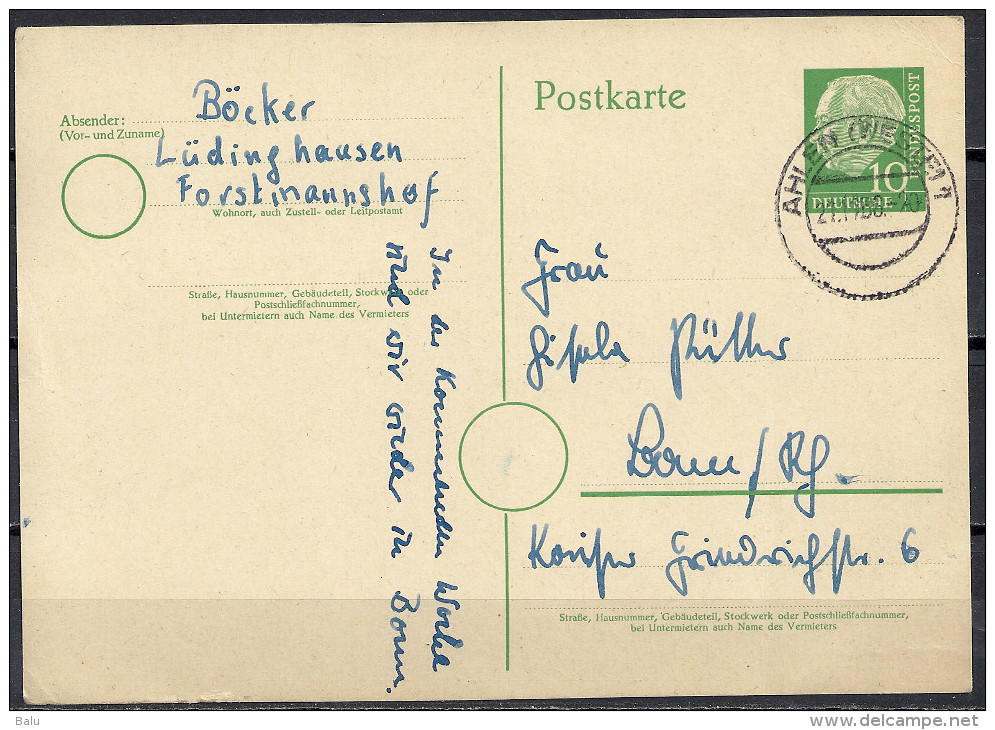 Absender:
(Vor- und Zuname)
Böcker
Lüdinghausen
Forstmannshof
Wohnort, auch Zustell- oder Leitpostamt
Straße, Hausnummer, Gebäudeteil, Stockwerk oder
Postschließfachnummer,
bei Untermietern auch Name des Vermieters
In der kommenden Woche
sind wir wieder in Bonn.
Postkarte
BUNDESPOST
10
DEUTSCHE
AHLEN (WESTF) 1
Frau
Gisela
Bonn/Rh.
Kaiser Friedrichstr. 6
Straße, Hausnummer, Gebäudeteil, Stockwerk oder Postschließfachnummer,
bei Untermietern auch Name des Vermieters
Balu
delcampe.net